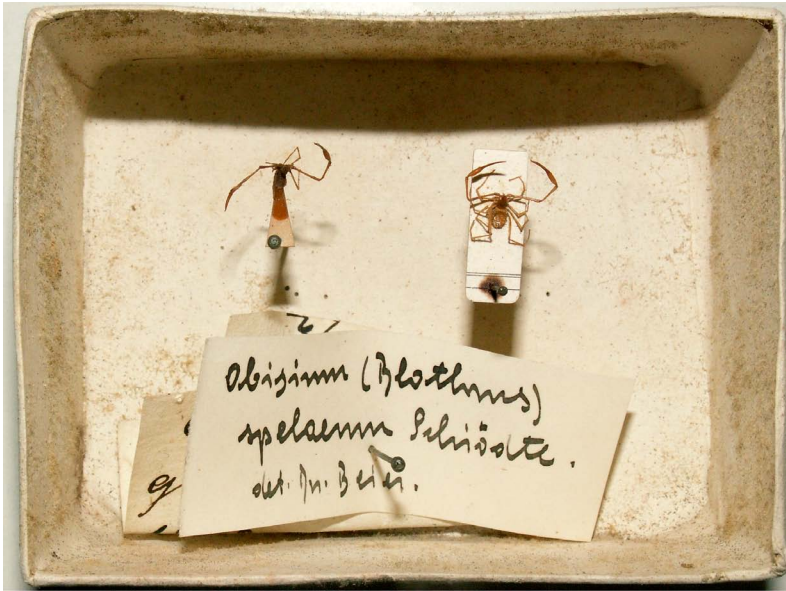 Obisium (Blothrus)
spelaeum Schiödte.
det. Dr. Beier.
g